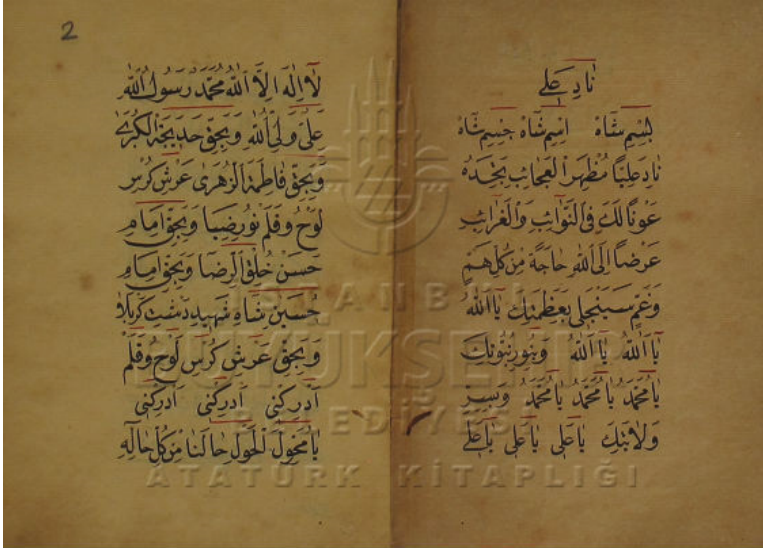 نَادِ عَلِي
بِسْمِ شَاهْ اِسْمِ شَاهْ جِسِيمِ شَاهْ
نَادِ عَلِيًّا مُظْهَرَ الْعَجَائِبِ تَجِدْهُ
عَوْنًا لَكَ فِي النَّوَائِبِ وَالْغَرَائِبِ
عَرْضًا اِلَى اللهِ حَاجَةً مِنْ كُلِّ هَمٍّ
وَغَمٍّ سَيَنْجَلِي بِعَظَمَتِكَ يَا اَللهُ
يَا اَللهُ يَا اَللهُ وَبِنُورِ نُبُوَّتِكَ
يَا مُحَمَّدُ يَا مُحَمَّدُ يَا مُحَمَّدُ وَبِسِرِّ
وَلَايَتِكَ يَا عَلِي يَا عَلِي يَا عَلِي
2
لَا اِلٰهَ اِلَّا اللهُ مُحَمَّدُ رَسُولُ اللهِ
عَلِيٌّ وَلِيُّ اللهِ وَبِحَقِّ خَدِيجَةِ الْكُبْرَى
وَبِحَقِّ فَاطِمَةَ الزُّهَرَى عَرْشِ كُرْسِ
لَوْحُ وقَلَمْ نُورِ ضِيَا وَبِحَقِّ اِمَامِ
حَسَنْ خُلْقِ الرِّضَا وَبِحَقِّ اِمَامِ
حُسَيْنْ شَاهِ شَهِيدِ دَشْتِ كَرْبَلَا
وَبِحَقِّ عَرْشِ كُرْسِ لَوْحُ وقَلَمْ
اَدْرِكْنِي اَدْرِكْنِي اَدْرِكْنِي
يَا مُحَوِّلَ الْحَوْلِ حَالَنَا مِنْ كُلِّ حَالِهِ
İSTANBUL
BÜYÜKŞEHİR
BELEDİYESİ
ATATÜRK KİTAPLIĞI